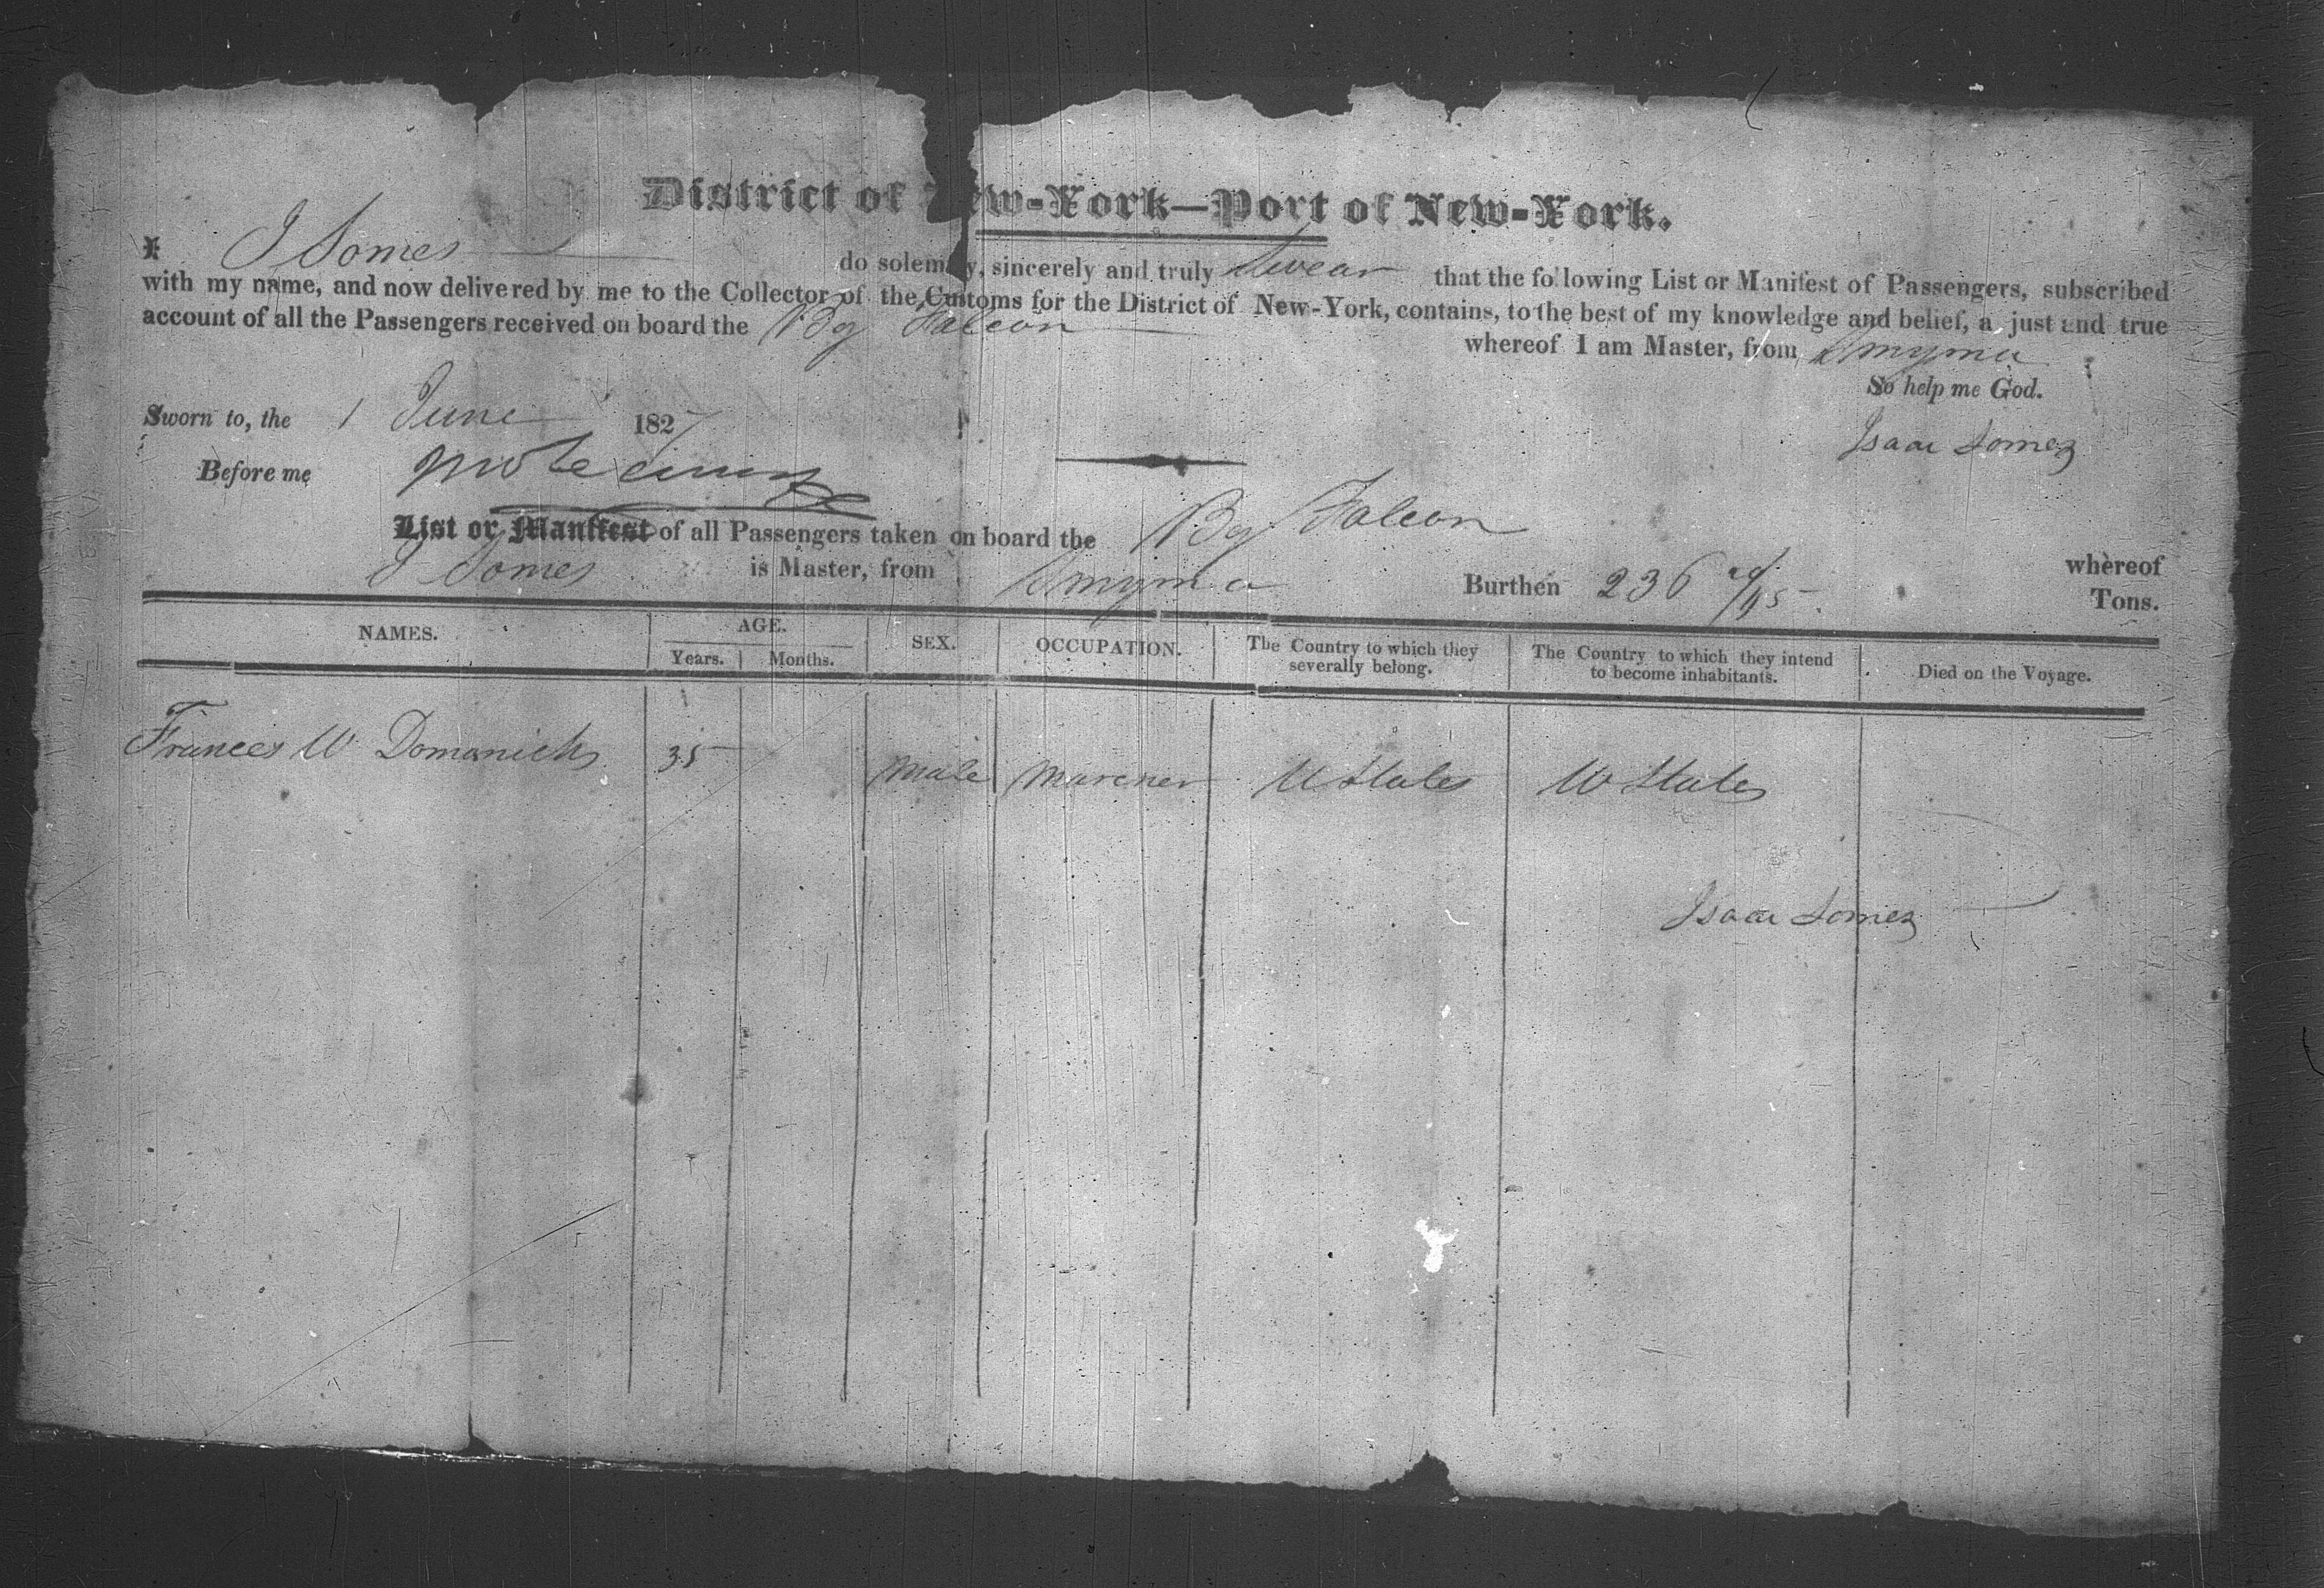 District of New-York—Port of New-York.
I J Somes do solemnly, sincerely and truly Swear that the following List or Manifest of Passengers, subscribed
with my name, and now delivered by me to the Collector of the Customs for the District of New-York, contains, to the best of my knowledge and belief, a just and true
account of all the Passengers received on board the Bg Falcon whereof I am Master, from Smyrna
So help me God.
Sworn to, the 1 June 1827
Isaac Somes
Before me
List or Manifest of all Passengers taken on board the Bg Falcon whereof
J Somes is Master, from Smyrna Burthen 236 /95 Tons.
NAMES. AGE. SEX. OCCUPATION. The Country to which they severally belong. The Country to which they intend to become inhabitants. Died on the Voyage.
Years. Months.
Frances W Domanick 35 Male Marener U States U States
Isaac Somes